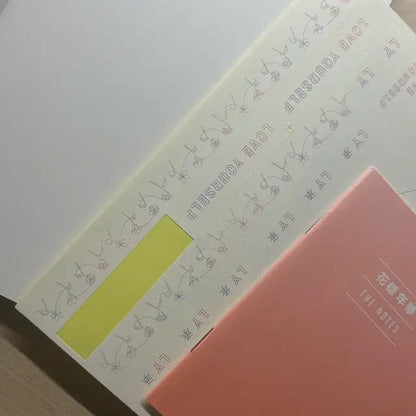 LOVE YOURSELF LOVE YOURSELF
LY 承 LY 承 LY 承 LY 承 LY 承 LY
YOURSELF
花樣年華
THE NOTES